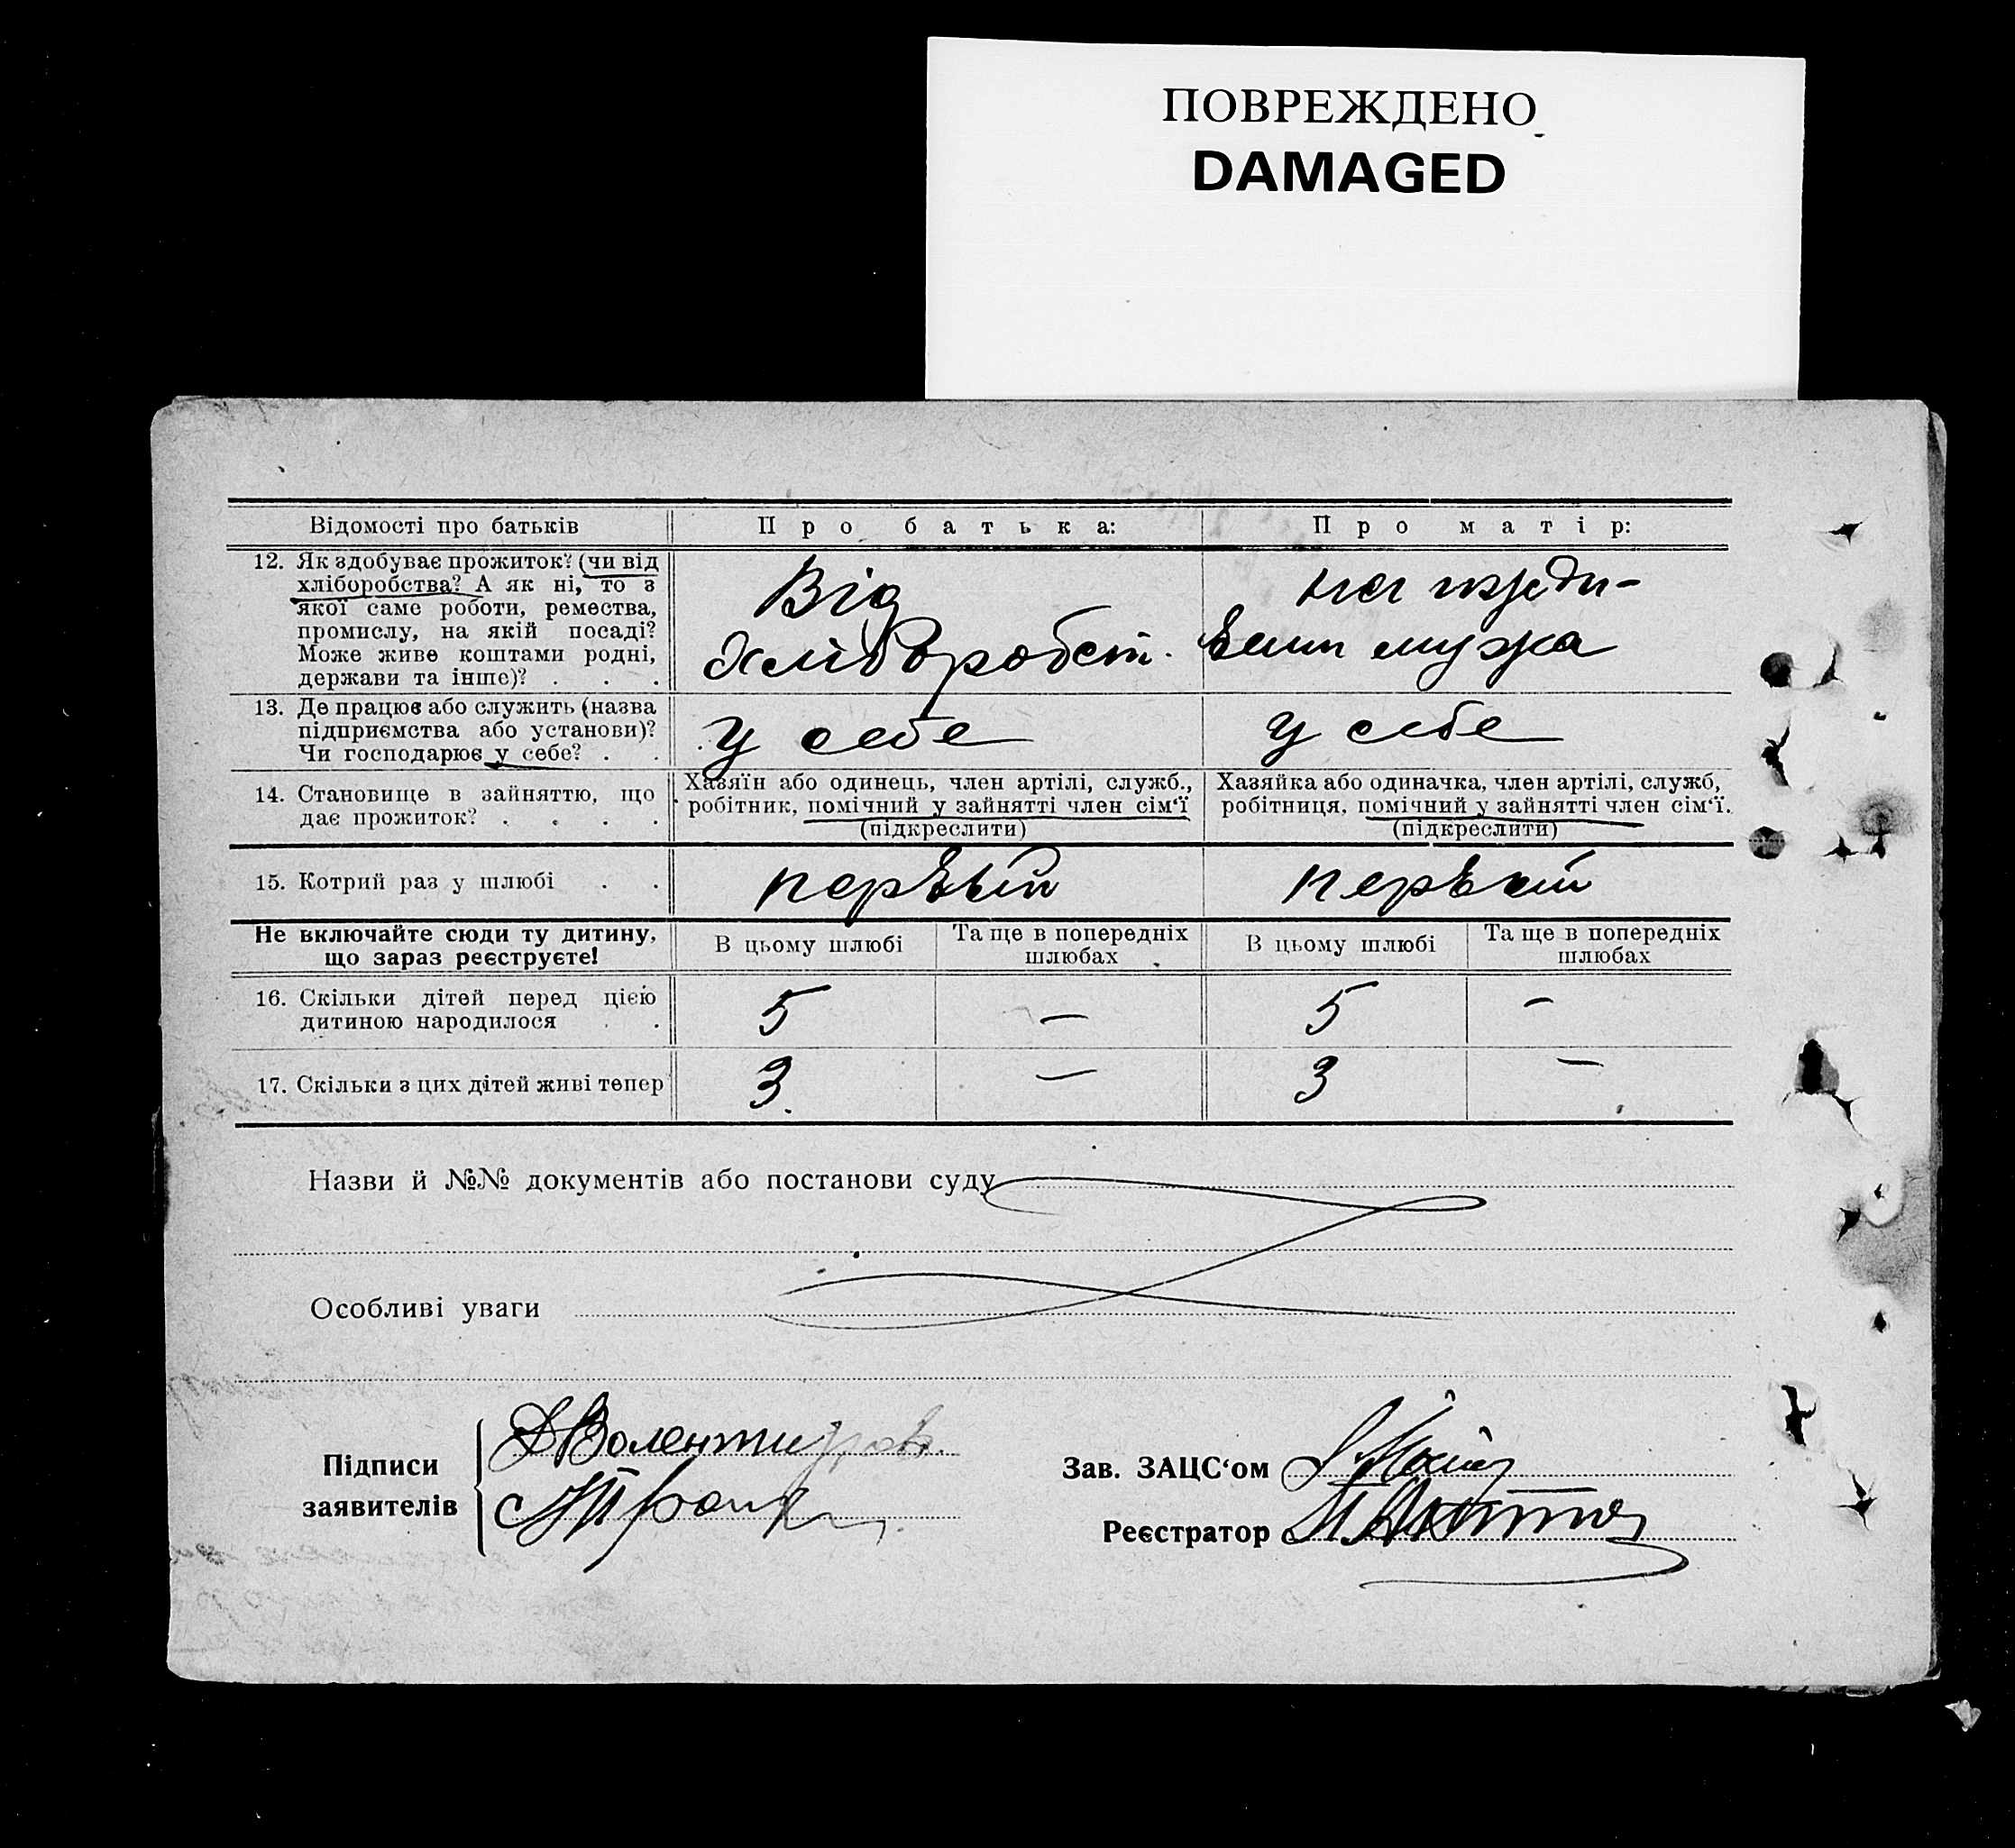 ПОВРЕЖДЕНО
DAMAGED
Відомості про батьків
Про батька:
Про матір:
12. Як здобуває прожиток? (чи від
хліборобства? А як ні, то з
якої саме роботи, ремества,
промислу, на якій посаді?
Може живе коштами родні,
держави та інше)? . . .
Від
хліборобст.
на иждн-
вении мужа
13. Де працює або служить (назва
підприємства або установи)?
Чи господарює у себе? . .
у себе
у себе
14. Становище в зайняттю, що
дає прожиток? . . . .
Хазяїн або одинець, член артілі, служб.,
робітник, помічний у зайнятті член сім'ї
(підкреслити)
Хазяйка або одиначка, член артілі, служб,
робітниця, помічний у зайнятті член сім'ї.
(підкреслити)
15. Котрий раз у шлюбі . .
первый
первый
Не включайте сюди ту дитину,
що зараз реєструєте!
В цьому шлюбі
Та ще в попередніх
шлюбах
В цьому шлюбі
Та ще в попередніх
шлюбах
16. Скільки дітей перед цією
дитиною народилося . .
5 — 5 —
17. Скільки з цих дітей живі тепер
3. — 3 —
Назви й №№ документів або постанови суду
Особливі уваги
Підписи
заявителів
ДВолентиров.
Зав. ЗАЦС'ом
Реєстратор